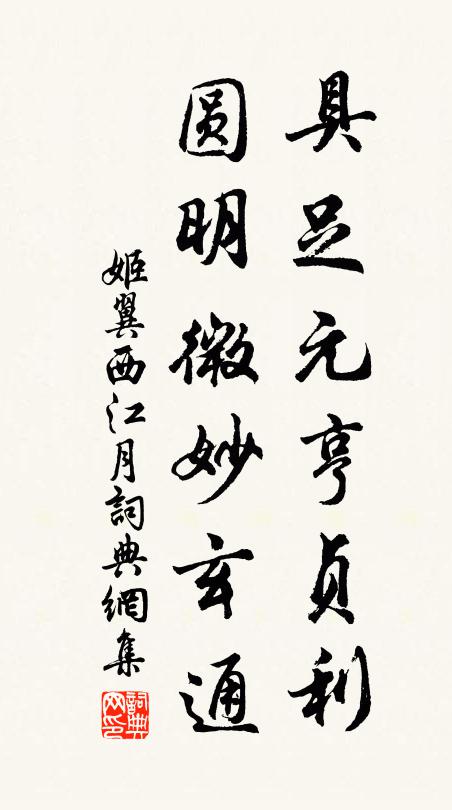 具足元亨貞利
圓明微妙玄通
姬翼西江月詞典網集
詞典網印